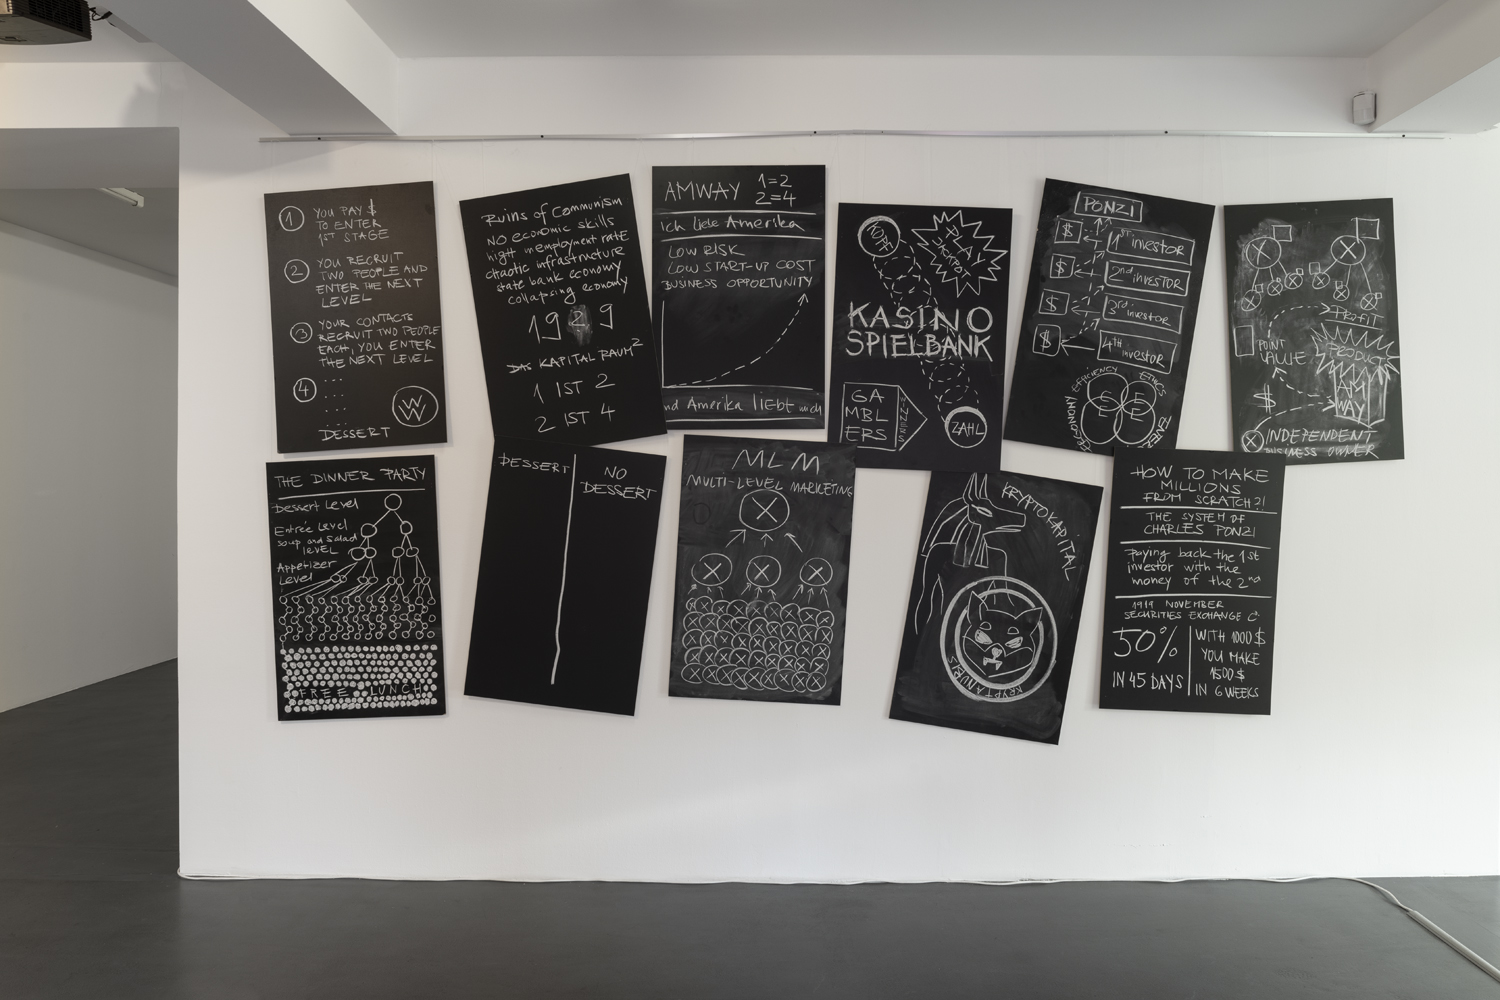 1 YOU PAY $
TO ENTER
1ST STAGE
2 YOU RECRUIT
TWO PEOPLE AND
ENTER THE NEXT
LEVEL
3 YOUR CONTACTS
RECRUIT TWO PEOPLE
EACH, YOU ENTER
THE NEXT LEVEL
4 ...
W
DESSERT
Ruins of Communism
NO economic skills
high unemployment rate
chaotic infrastructure
state bank economy
collapsing economy
1929
DAS KAPITAL RAUM²
1 IST 2
2 IST 4
AMWAY 1=2
2=4
ich liebe Amerika
LOW RISK
LOW START-UP COST
BUSINESS OPPORTUNITY
nd Amerika liebt mich
JACKPOT
KASINO
SPIELBANK
GA
MBL
ERS
WINNERS
ZAHL
PONZI
$ 1ST investor
$ 2nd investor
$ 3rd investor
$ 4TH investor
EFFICIENCY ETHICS
E E
E
PROFIT
POINT
VALUE
PRODUCT
$
AM
WAY
X INDEPENDENT
BUSINESS OWNER
THE DINNER PARTY
Dessert Level
Entrée Level
soup and salad
level
Appetizer
Level
FREE LUNCH
DESSERT
NO
DESSERT
MLM
MULTI-LEVEL MARKETING
KRYPTOKAPITAL
HOW TO MAKE
MILLIONS
FROM SCRATCH?!
THE SYSTEM OF
CHARLES PONZI
paying back the 1st
investor with the
money of the 2nd
1919 NOVEMBER
SECURITIES EXCHANGE Cº
50%
IN 45 DAYS
WITH 1000 $
YOU MAKE
1500 $
IN 6 WEEKS